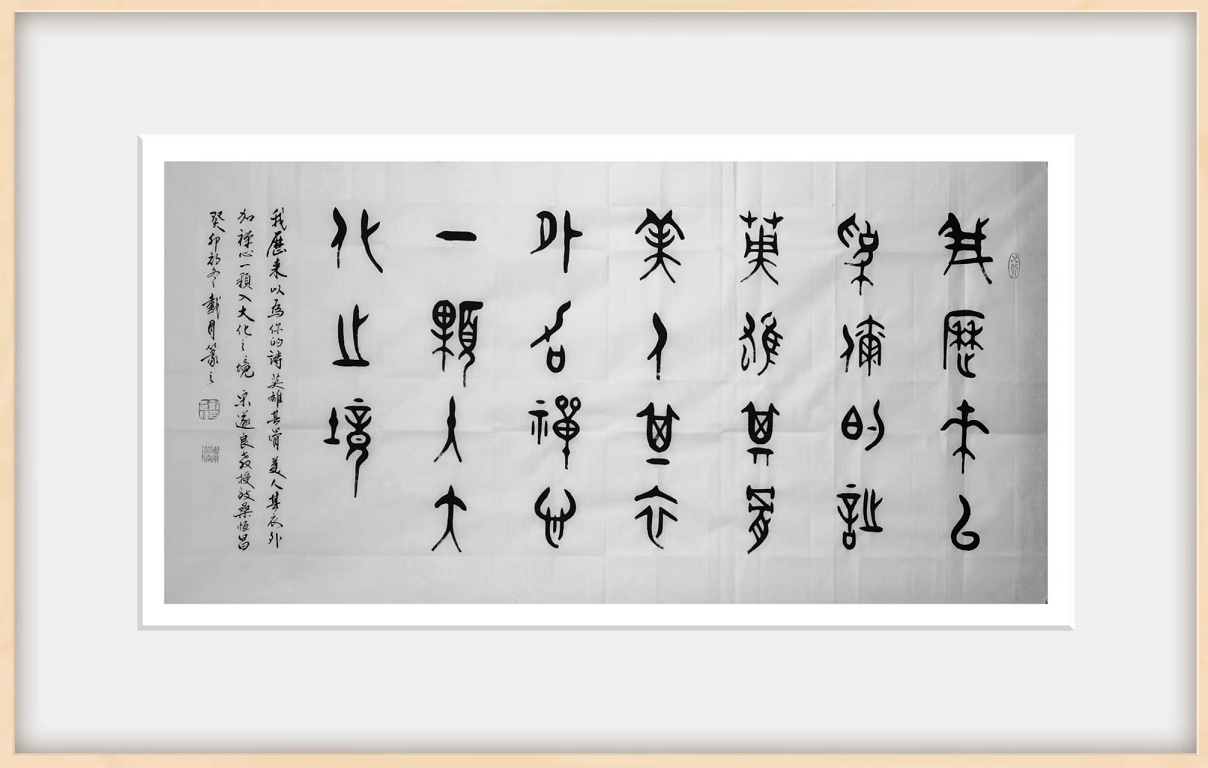 我歷來以
為你的詩
英雄其骨
美人其衣
外加禪心
一顆入大
化之境
我歷来以為你的詩英雄其骨美人其衣外
加禪心一顆入大化之境 宋遂良教授致桑恒昌
癸卯初冬戴月篆之